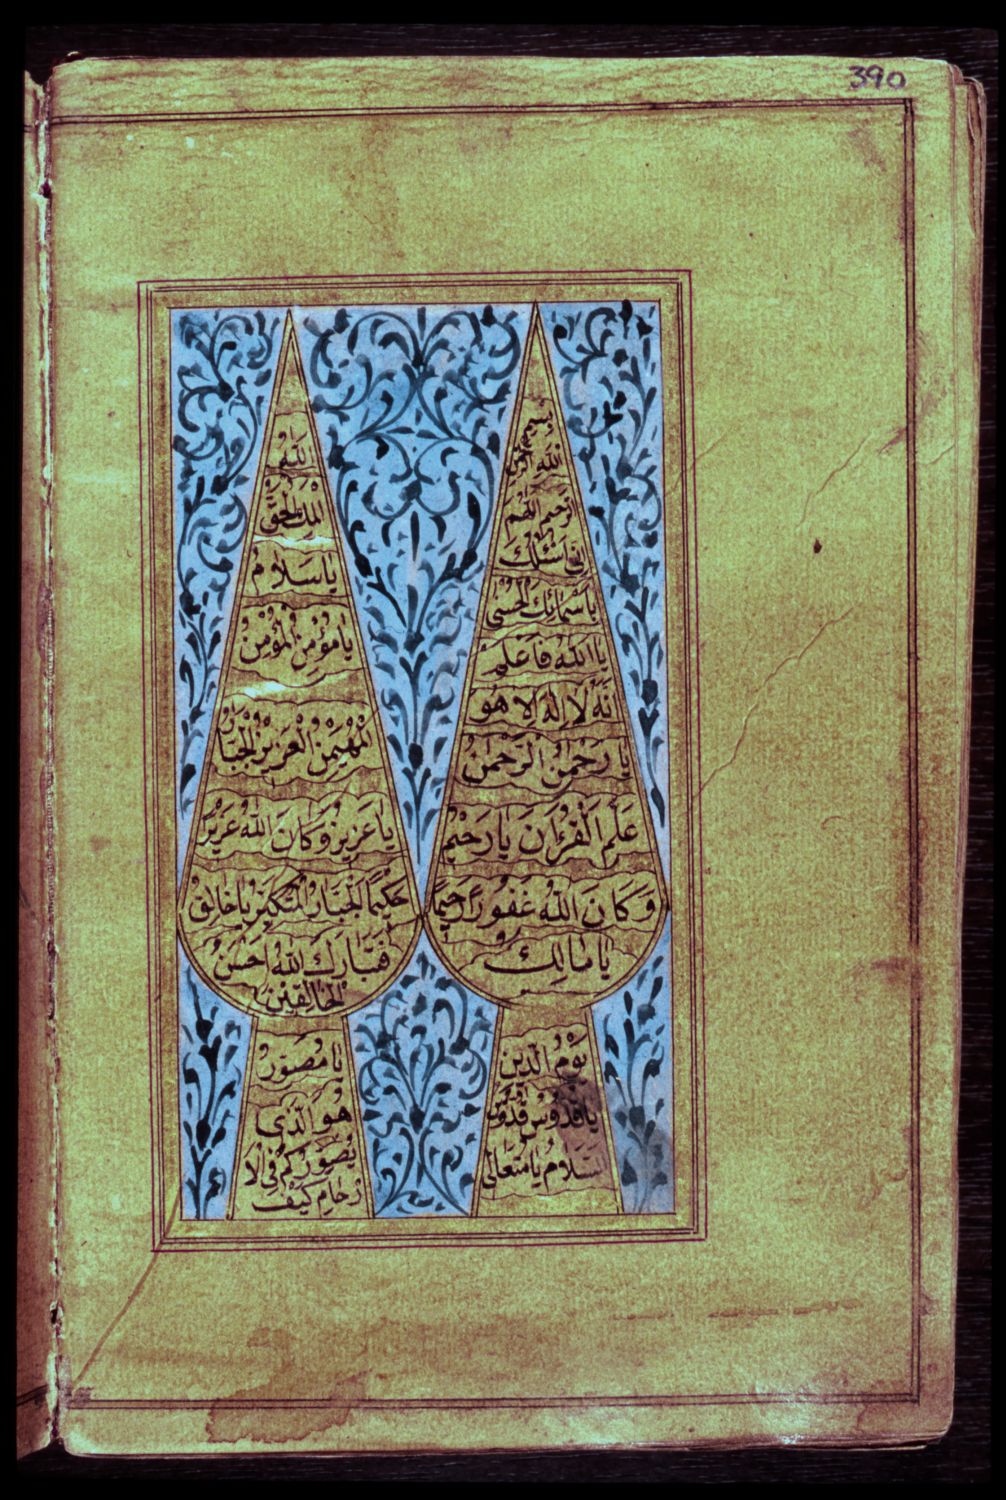 390
بسم
الله الرحمن
الرحيم اللهم
اني اسئلك
باسمائك الحسنى
يا الله فاعلم
انه لا اله الا هو
يا رحمن الرحمن
علم القران يا رحيم
وكان الله غفورا رحيما
يا مالك
يوم الدين
يا قدوس قدوس
السلام يا متعالى
الله
الملك الحق
يا سلام
يا مؤمن المؤمن
المهيمن العزيز الجبار
يا عزيز وكان الله عزيز
حكيما الجبار المتكبر يا خالق
فتبارك الله احسن
الخالقين
يا مصور
هو الذى
يصوركم فى الا
رحام كيف